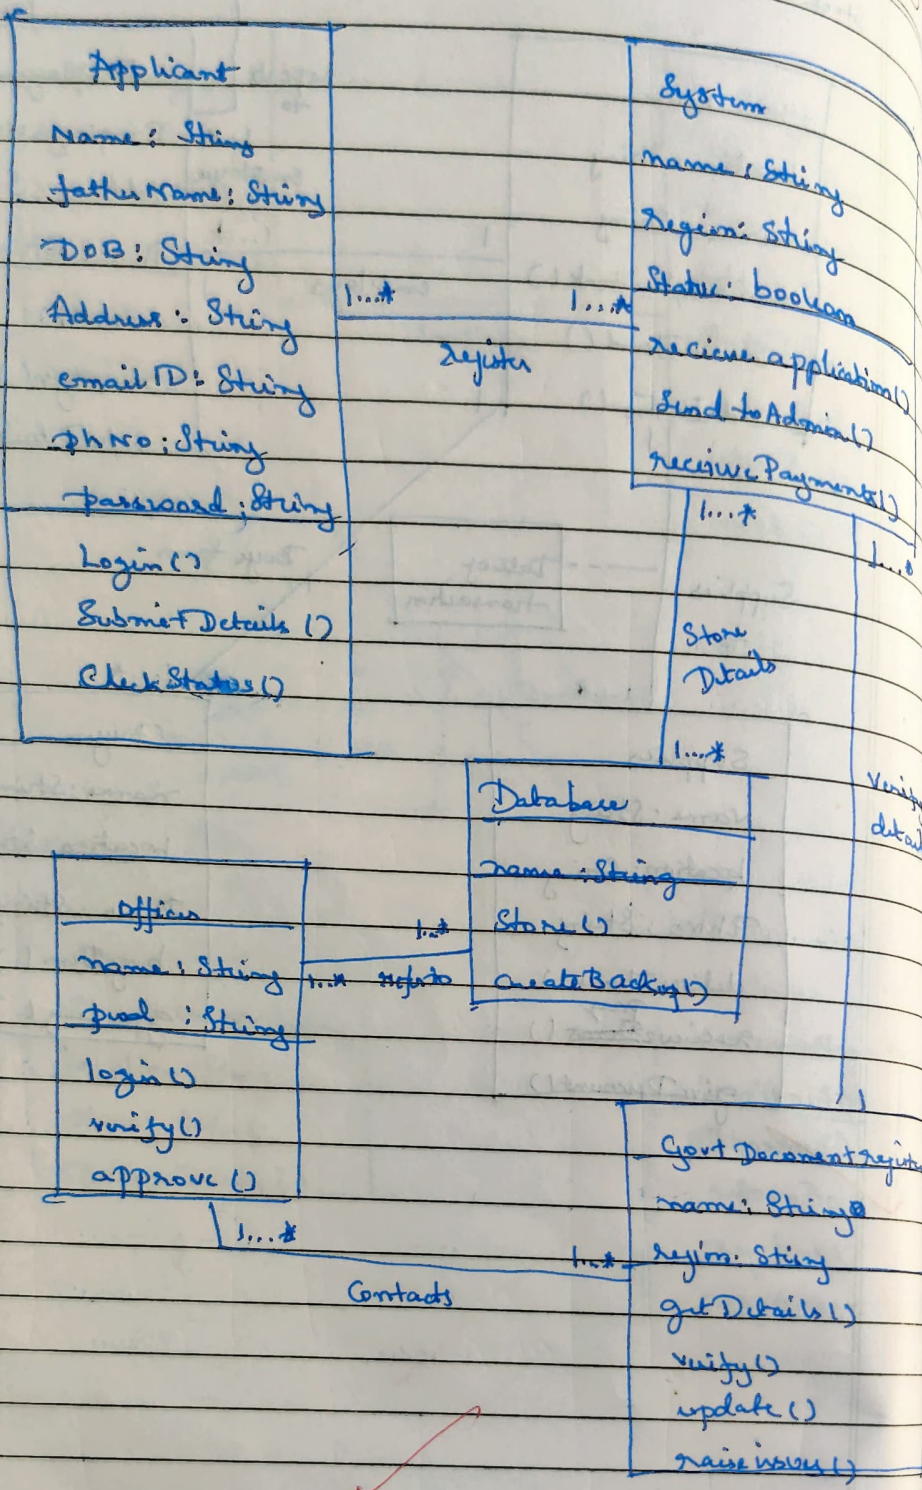 Applicant
Name: String
fatherName: String
DOB: String
Address: String
emailID: String
phNo: String
password: String
Login()
SubmitDetails()
CheckStatus()
1...* 1...*
register
System
name: String
region: String
Status: boolean
recieve application()
Send to Admin()
receive Payments()
1...*
1...*
Store
Details
1...*
Verify
detai
Database
name: String
Store()
createBackup()
Officer
name: String
: String
login()
verify()
approve()
1..*
1...* refers to
1...*
1..*
Contacts
1
Govt Document
name: String
region: String
getDetails()
verify()
update()
raise issues()